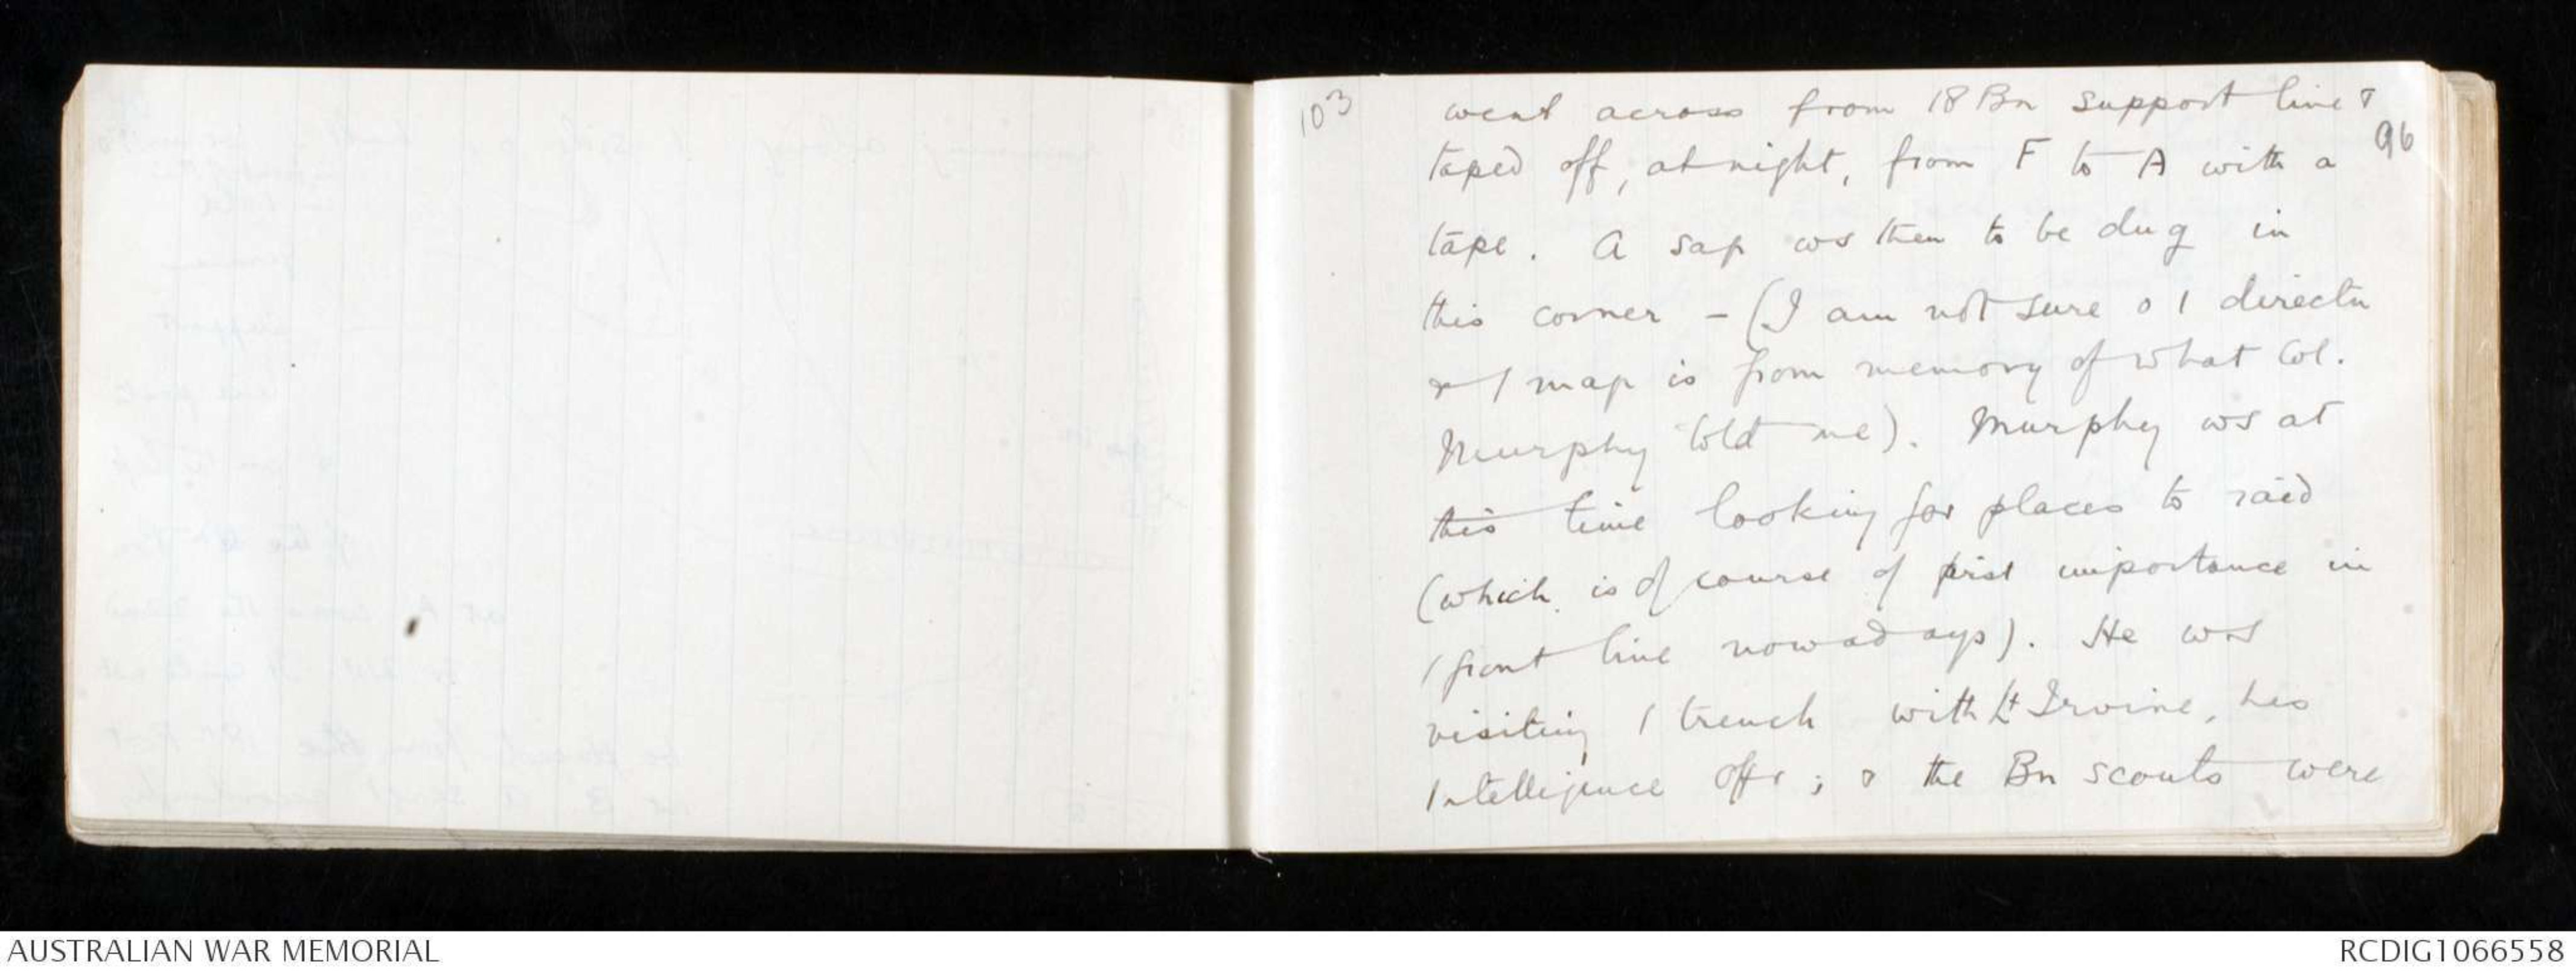 103
went across from 18 Bn support line &
96
taped off, at night, from F to A with a
tape. A sap ws then to be dug in
this corner - (I am not sure o / directn
& / map is from memory of what Col.
Murphy told me). Murphy ws at
this time looking for places to raid
(which is of course of first importance in
/ front line nowadays). He was
visiting / trench with Lt Irvine, his
Intelligence offr; & the Bn scouts were
AUSTRALIAN WAR MEMORIAL
RCDIG1066558